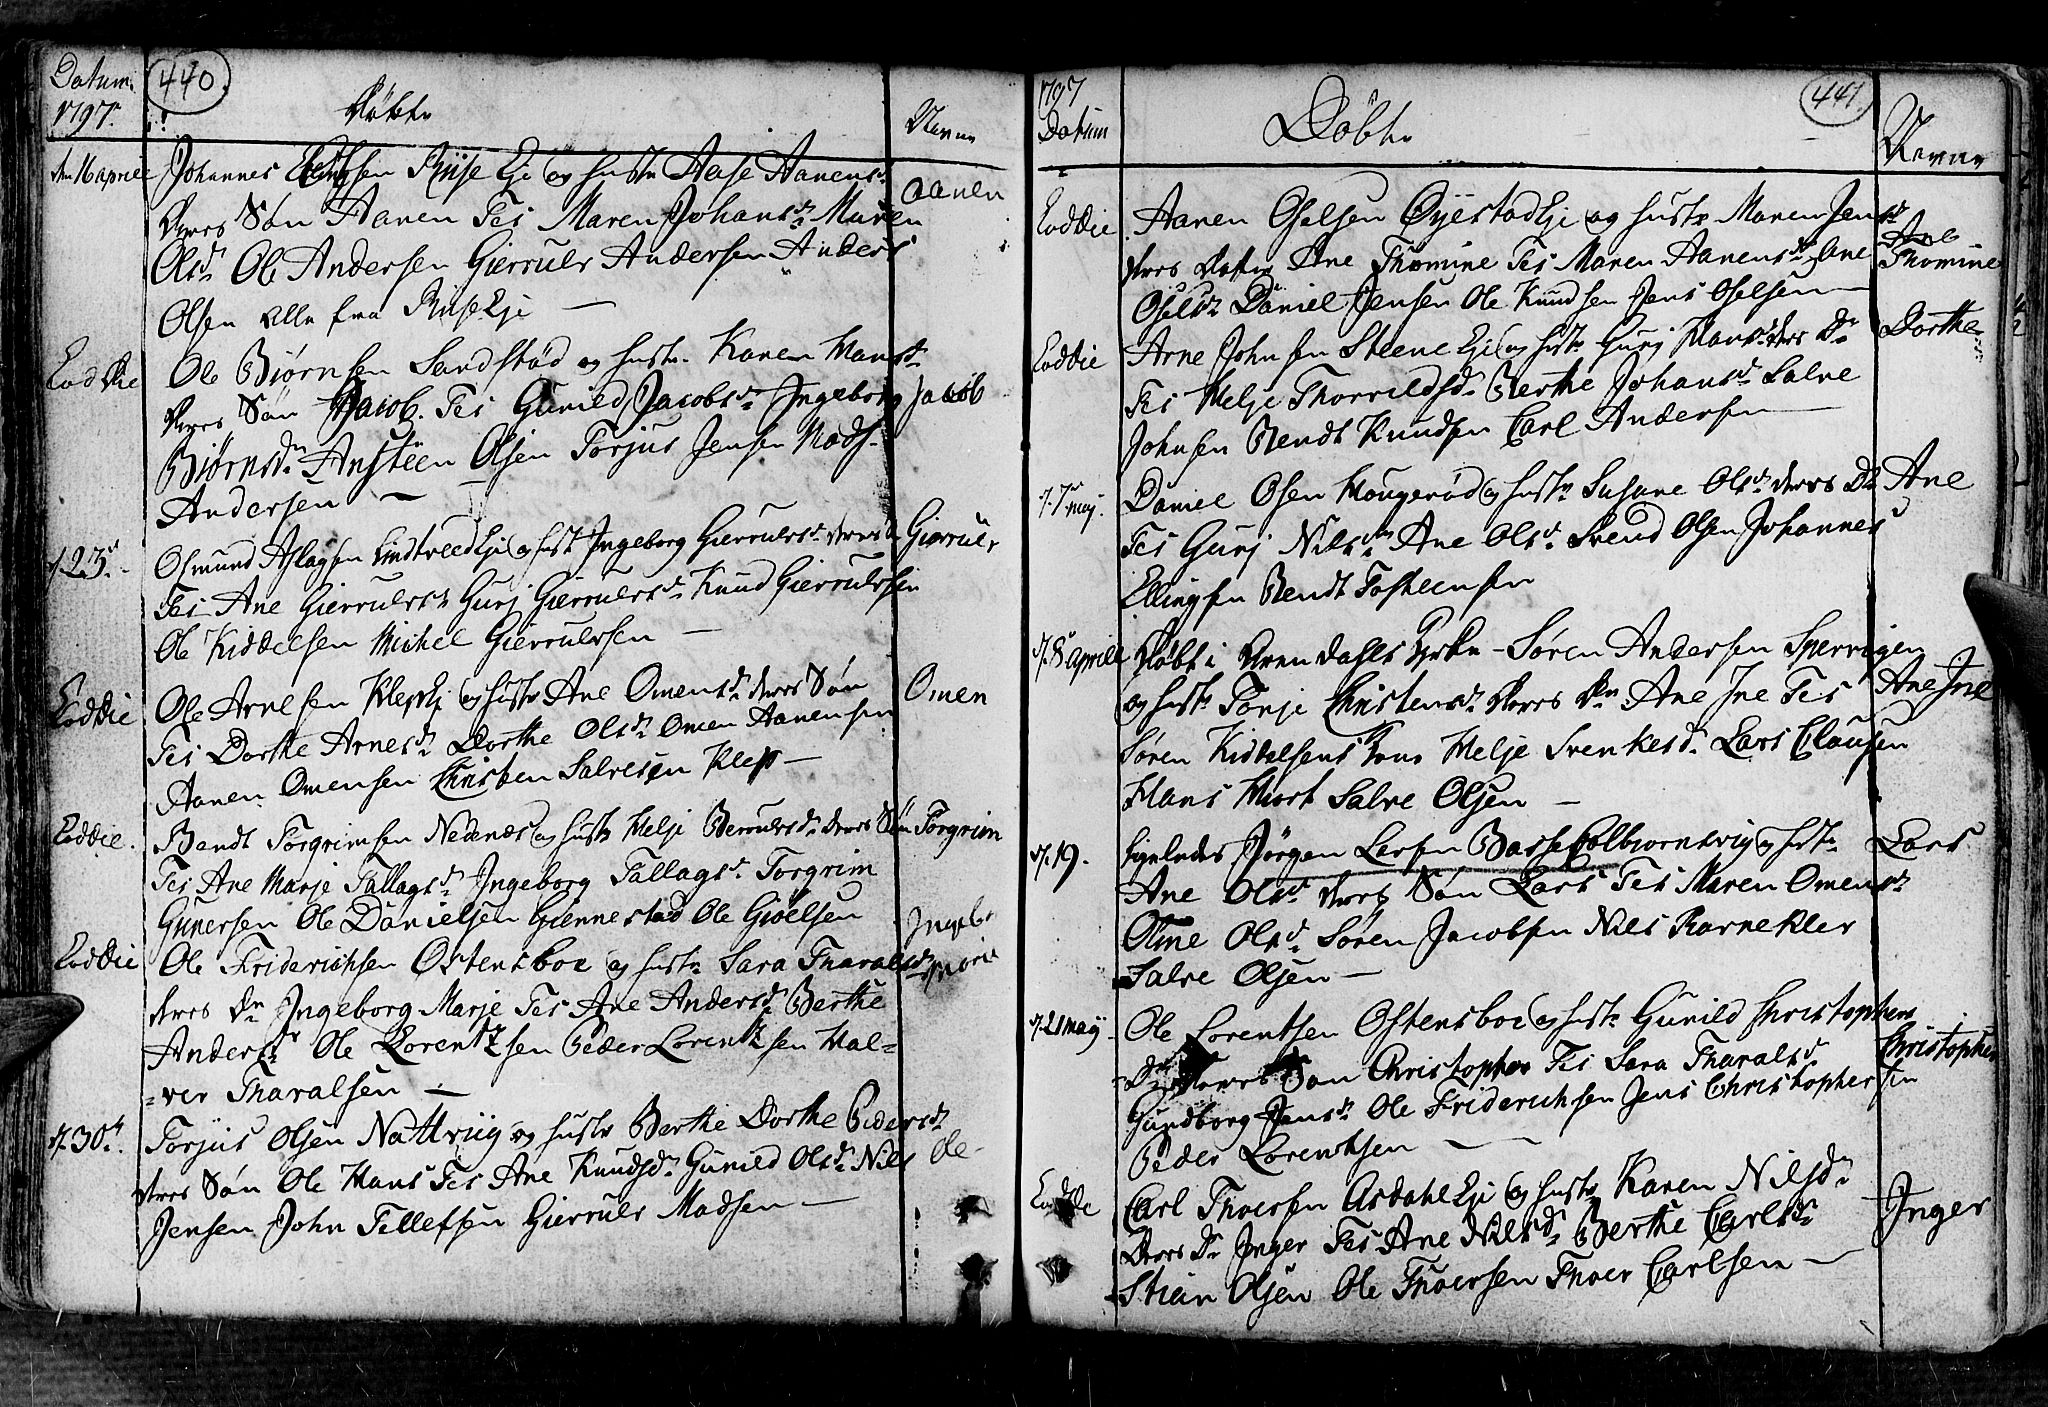 Datum. 440
1797. Døbte Navne
den 16 aprile Johannes Ellingsen Riise Eje og hustr Aase Aanensd.
deres Søn Aanen Tes Maren Johansd. Maren Aanen
Olsd. Ole Andersen Gierruls Andersen Anders
Olsen alle fra Riise Eje —
Eod Die Ole Biørnsen Sandstød og hustr. Karen Hansd.
deres Søn Jacob. Tes Gunild Jacobsd. Ingeborg Jacob
Biørnsd. Ansteen Olsen Torjus Jensen Mads
Andersen —
d. 23. Osmund Aslagsen Lindtveed Eje og hustr Ingeborg Gierrulsd. deres Gierruls
Tes Ane Gierrulsd. Gurj Gierrulsd. Knud Gierrulsen
Ole Kiddelsen Michel Gierrulsen —
Eod Die Ole Arnesen Klep Ej og hustr Ane Omensd. deres Søn Omen
Tes Dorthe Arnesd. Dorthe Olsd. Omen Aanensen
Aanen Omensen Christen Salvesen Klep —
Eod die. Bendt Torgrimsen Nedenæs og hustr Helje Berrulsd. deres Søn Torgrim
Tes Ane Marje Tallagsd. Ingeborg Tallagsd. Torgrim
Gunersen Ole Danielsen Giennestad Ole Gioelsen
Eod Die Ole Friderichsen Ostensboe og hustr Sara Tharalsd. Ingeb.
deres Dr. Ingeborg Marje Tes Ane Andersd. Berthe Marie
Andersd. Ole Lorentzsen Peder Lorentzsen Hal=
=vor Tharalsen —
d. 30. Torjus Olsen Nattvig og hustr Berthe Dorthe Pedersd.
deres Søn Ole Hans Tes Ane Knudsd. Gunild Olsd. Nils Ole
Jensen John Tellefsen Gierruls Madsen —
1797 441
Datum Døbte Navne
Eod Die Aanen Oselsen Øyestad Eje og hustr Maren Jensd. Ane
deres Datter Ane Thomine Tes Maren Aanensd. Ane Thomine
Oselsd. Daniel Jensen Ole Knudsen Jens Oselsen —
Eod Die Arne Johnsen Steene Eje og hustr Gurj Hansd. deres Dr. Dorthe
Tes Helje Thorvildsd. Berthe Johansd. Salve
Johnsen Bendt Knudsen Carl Andersen —
d. 7 maj. Daniel Osen Hougerød og hustr Susane Olsd. deres Dr. Ane
Tes Gurj Nilsd. Ane Olsd. Svend Olsen Johannes
Ellingsen Bendt Tosteensen
d. 8 Aprile Døbt i Arendahls Kirke – Søren Andersen Spervigen
og hustr Tonje Christensd. deres Dr. Ane Ine Tes Ane Ine
Søren Kiddelsens Kone Helje Svenkesd. Lars Clausen
Hans Hiort Salve Olsen —
d. 19. ligeledes Jørgen Larsen Basse Colbiornsvig og hustr Lars
Ane Olsd. deres Søn Lars Tes Maren Omensd.
Oline Olsd. Søren Jacobsen Nils Karnekler
Salve Olsen —
d. 21 maij Ole Lorentsen Ostensboe og hustr Gunild Christophers
Dr. deres Søn Christopher Tes Sara Tharalsd. Christopher
Gundborg Jensd. Ole Friderichsen Jens Christophersen
Peder Lorentsen —
Eod Die Carl Thoersen Asdahl Eje og hustr Karen Nilsd.
deres Dr. Inger Tes Ane Nilsd. Berthe Carlsd. Inger
Stian Olsen Ole Thoersen Thoer Carlsen —